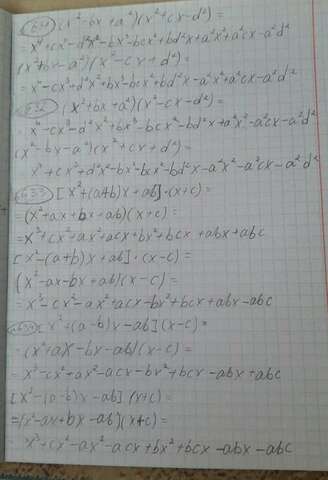 631 (x²-bx+a²)(x²+cx-d²)=
=x⁴+cx³-d²x²-bx³-bcx²+bd²x+a²x²+a²cx-a²d²
(x²+bx-a²)(x²-cx+d²)=
=x⁴-cx³+d²x²+bx³-bcx²+bd²x-a²x²+a²cx-a²d²
632 (x²+bx+a²)(x²-cx-d²)=
=x⁴-cx³-d²x²+bx³-bcx²-bd²x+a²x²-a²cx-a²d²
(x²-bx-a²)(x²+cx+d²)=
x⁴+cx³+d²x²-bx³-bcx²-bd²x-a²x²-a²cx-a²d²
633 [x²+(a+b)x+ab]·(x+c)=
=(x²+ax+bx+ab)(x+c)=
=x³+cx²+ax²+acx+bx²+bcx+abx+abc
[x²-(a+b)x+ab]·(x-c)=
(x²-ax-bx+ab)(x-c)=
=x³-cx²-ax²+acx-bx²+bcx+abx-abc
634 [x²+(a-b)x-ab](x-c)=
=(x²+ax-bx-ab)(x-c)=
=x³-cx²+ax²-acx-bx²+bcx-abx+abc
[x²-(a-b)x-ab](x+c)=
=(x²-ax+bx-ab)(x+c)=
x³+cx²-ax²-acx+bx²+bcx-abx-abc